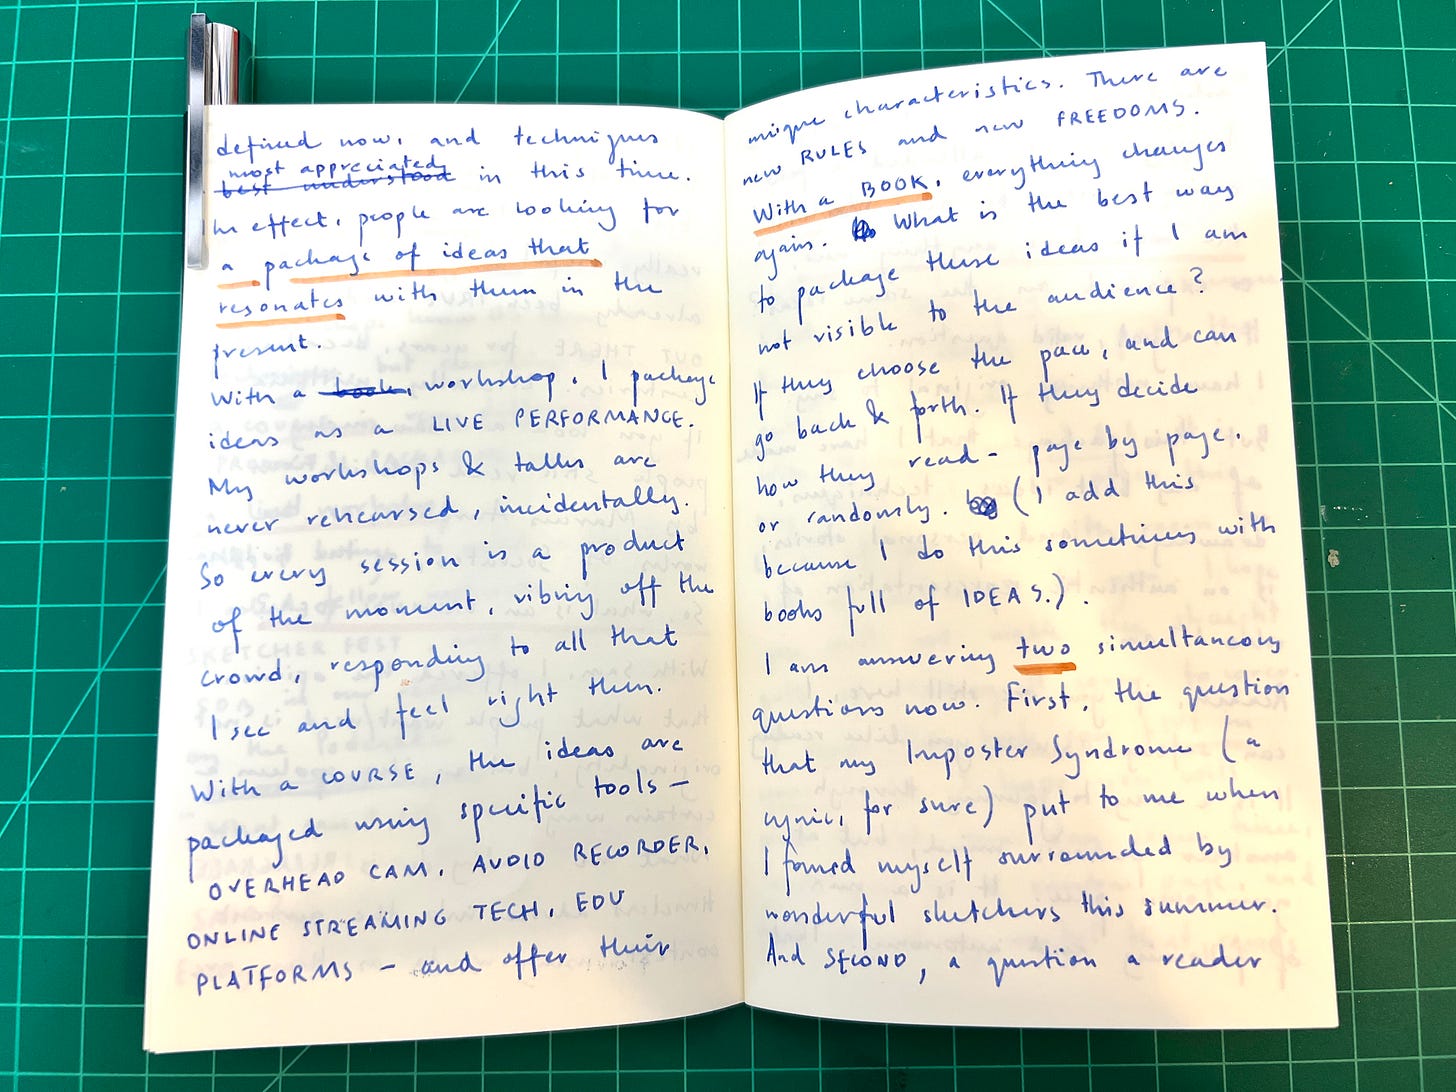 defined now, and techniques
most appreciated
best understood in this time.
In effect, people are looking for
a package of ideas that
resonates with them in the
present.
With a book, workshop, I package
ideas as a LIVE PERFORMANCE.
My workshops & talks are
never rehearsed, incidentally.
So every session is a product
of the moment, vibing off the
crowd, responding to all that
I see and feel right then.
With a COURSE, the ideas are
packaged using specific tools –
OVERHEAD CAM, AUDIO RECORDER,
ONLINE STREAMING TECH, EDU
PLATFORMS – and offer their
unique characteristics. There are
new RULES and new FREEDOMS.
With a BOOK, everything changes
again. What is the best way
to package these ideas if I am
not visible to the audience?
If they choose the pace, and can
go back & forth. If they decide
how they read - page by page,
or randomly. (I add this
because I do this sometimes with
books full of IDEAS.).
I am answering two simultaneous
questions now. First, the question
that my Imposter Syndrome (a
cynic, for sure) put to me when
I found myself surrounded by
wonderful sketchers this summer.
And SECOND, a question a reader